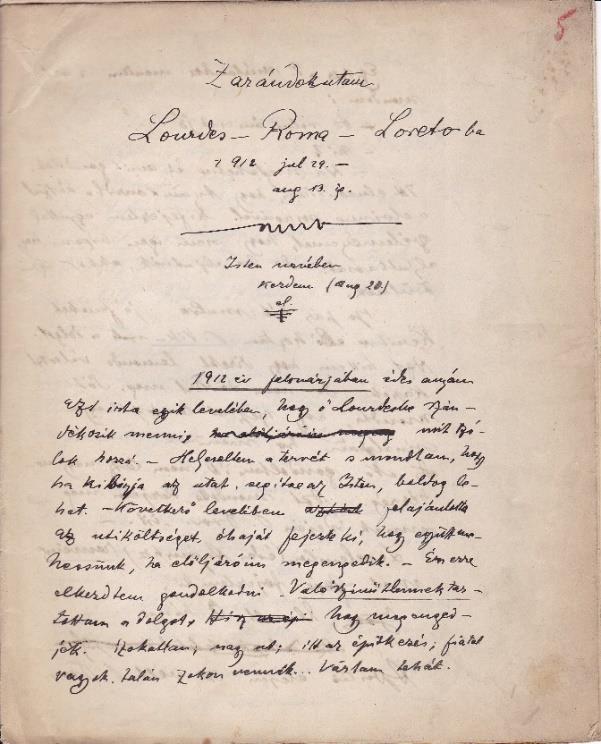 5
Zarándokutam
Lourdes – Roma – Loreto-ba
1912 jul 29. –
aug 13. ig.
Isten nevében
kezdem (aug 20.)
1912 év februárjában édes anyám
azt irta egyik levelében, hogy ő Lourdesba szán-
dékozik menni, mit szó-
lok hozzá. – Helyeseltem a tervét s mondtam, hogy
ha kibirja az utat, segitse az Isten, boldog le-
het. – Következő levelében felajánlotta
az utiköltséget, óhaját fejezte ki, hogy együtt me-
hessünk, ha elöljáróim megengedik. – Én erre
elkezdtem gondolkodni. Valószinütlennek tar-
tottam a dolgot, hogy megenged-
jék. Szokatlan; nagy ut; itt az épitkezés; fiatal
vagyok. talán zokon vennék... Vártam tehát.